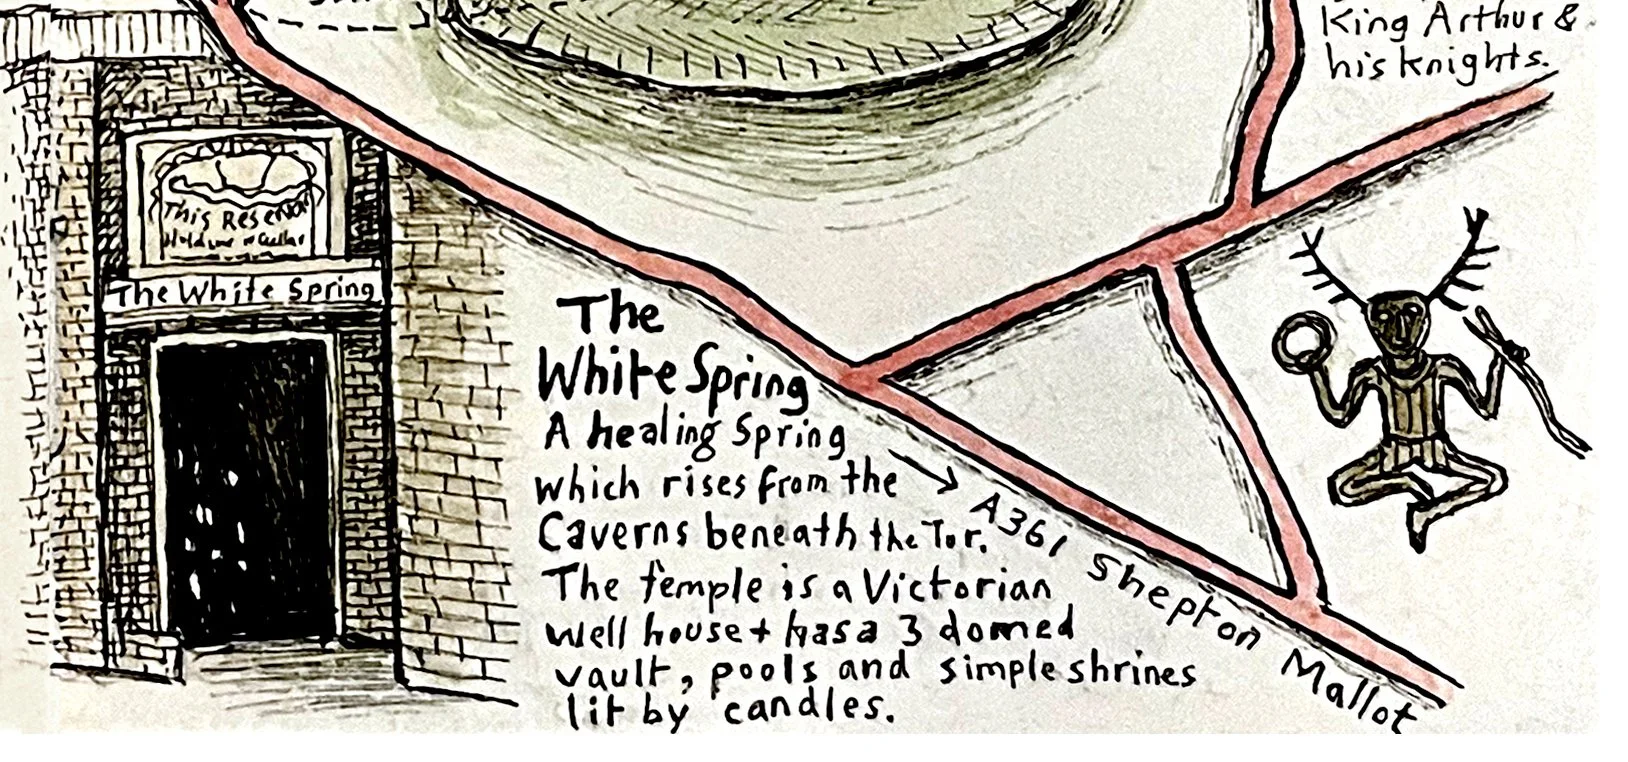 King Arthur &
his knights.
This Reservoir
The White Spring
The
White Spring
A healing Spring
which rises from the
Caverns beneath the Tor.
The temple is a Victorian
well house + has a 3 domed
vault, pools and simple shrines
lit by candles.
A361 Shepton Mallot